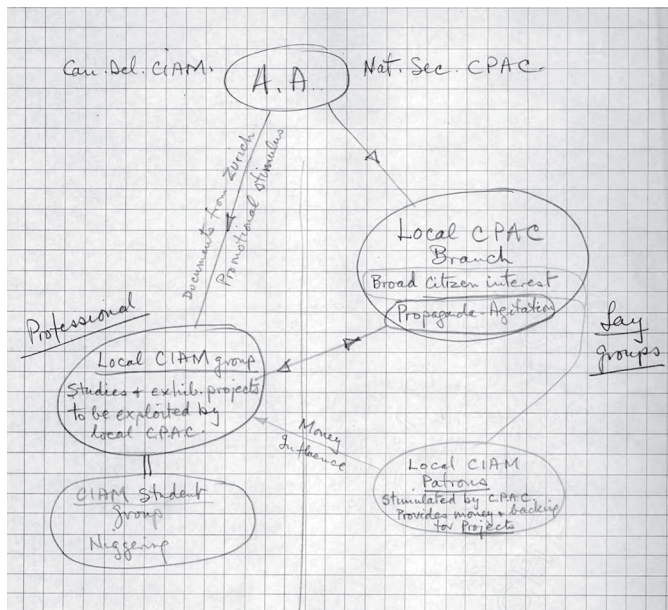 Can. Del. CIAM.
A.A.
Nat. Sec. CPAC.
Documents from Zurich
Promotional stimulus
Local CPAC
Branch
Broad Citizen interest
Propaganda-Agitation
Professional
Lay
groups
Local CIAM group
Studies & exhib. projects
to be exploited by
local C.P.A.C.
Money
Influence
Local CIAM
Patrons
Stimulated by C.P.A.C.
Provides money & backing
for Projects
CIAM Student
group
Niggering